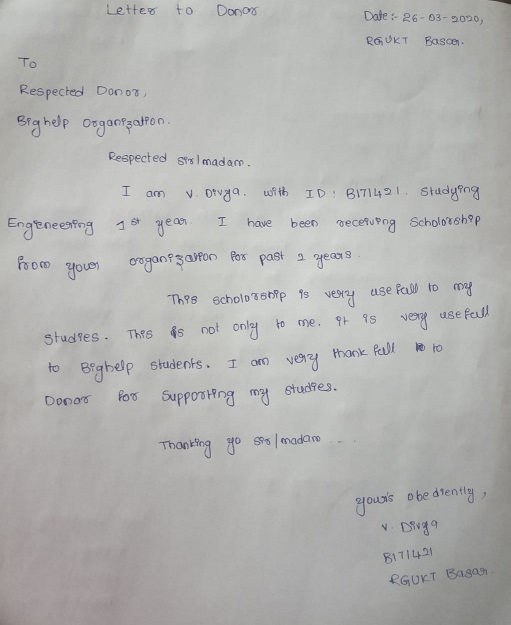 Letter to Donor
Date:- 26-03-2020,
RGUKT Basar.
To
Respected Donor,
Bighelp Organization.
Respected sir/madam.
I am V. Divya. with ID: B171421. Studying
Engineneering 1st year. I have been receiving Scholorship
from your organization for past 2 years.
This scholorship is very use full to my
studies. This is not only to me. it is very use full
to Bighelp students. I am very thank full to
Donor for supporting my studies.
Thanking yo sir/madam ...
your's obediently,
V. Divya
B171421
RGUKT Basar.